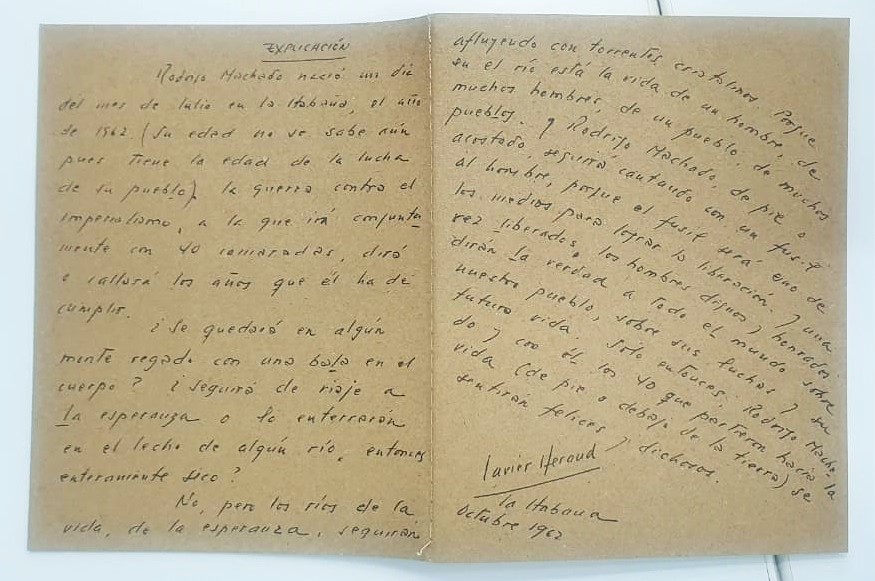 EXPLICACIÓN
Rodrigo Machado nació un día
del mes de Julio en la Habana, el año
de 1962 (Su edad no se sabe aún
pues tiene la edad de la lucha
de su pueblo), la guerra contra el
imperialismo, a la que irá conjunta
mente con 40 camaradas, dirá
o callará los años que él ha de
cumplir.
¿Se quedará en algún
monte regado con una bala en el
cuerpo? ¿Seguirá de viaje a
la esperanza o lo enterrarán
en el lecho de algún río, entonces
enteramente seco?
No, pero los ríos de la
vida, de la esperanza, seguirán
afluyendo con torrentes cristalinos. Porque
en el río está la vida de un hombre, de
muchos hombres, de un pueblo, de muchos
pueblos. Y Rodrigo Machado, de pie o
acostado, seguirá cantando con un fusil
al hombre, porque el fusil será uno de
los medios para lograr la liberación. Y una
vez liberados, los hombres dignos y honrados
dirán la verdad a todo el mundo sobre
nuestro pueblo, sobre sus luchas y su
futura vida. Sólo entonces, Rodrigo Macha
do y con él los 40 que partieron hacia la
vida (de pie o debajo de la tierra) se
sentirán felices y dichosos.
Javier Heraud
La Habana
Octubre 1962